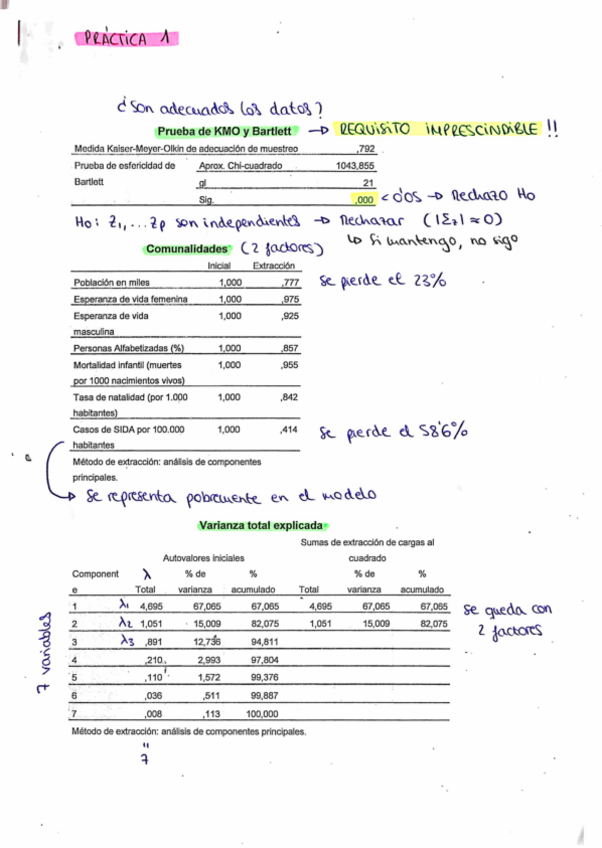 PRÁCTICA 1
¿Son adecuados los datos?
Prueba de KMO y Bartlett → REQUISITO IMPRESCINDIBLE !!
Medida Kaiser-Meyer-Olkin de adecuación de muestreo ,792
Prueba de esfericidad de Aprox. Chi-cuadrado 1043,855
Bartlett gl 21
Sig. ,000 < 0'05 → Rechazo Ho
Ho: Z1,... Zp son independientes → Rechazar (|Σz| ≈ 0)
↳ Si mantengo, no sigo
Comunalidades (2 factores)
Inicial Extracción
Población en miles 1,000 ,777 se pierde el 23%
Esperanza de vida femenina 1,000 ,975
Esperanza de vida 1,000 ,925
masculina
Personas Alfabetizadas (%) 1,000 ,857
Mortalidad infantil (muertes 1,000 ,955
por 1000 nacimientos vivos)
Tasa de natalidad (por 1.000 1,000 ,842
habitantes)
Casos de SIDA por 100.000 1,000 ,414 se pierde el 58'6%
habitantes
Método de extracción: análisis de componentes
principales.
→ Se representa pobremente en el modelo
Varianza total explicada
Sumas de extracción de cargas al
Autovalores iniciales cuadrado
Component λ % de % % de %
e Total varianza acumulado Total varianza acumulado
1 λ1 4,695 67,065 67,065 4,695 67,065 67,065 se queda con
2 λ2 1,051 15,009 82,075 1,051 15,009 82,075 2 factores
3 λ3 ,891 12,736 94,811
4 ,210 2,993 97,804
5 ,110 1,572 99,376
6 ,036 ,511 99,887
7 ,008 ,113 100,000
7 variables
Método de extracción: análisis de componentes principales.
"
7